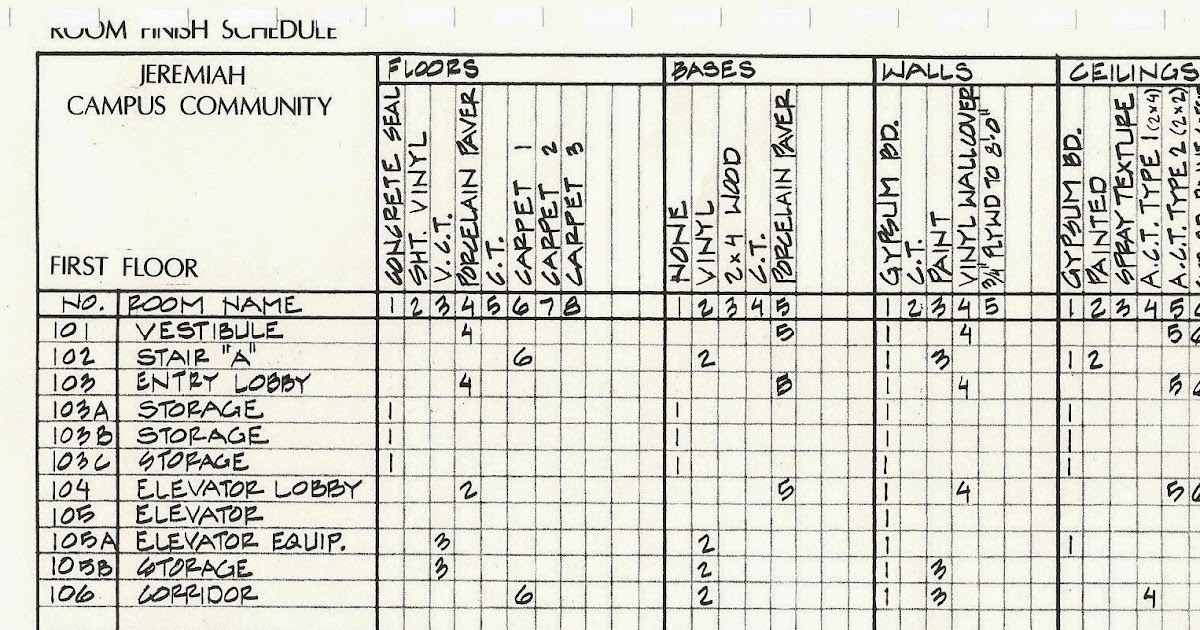 ROOM FINISH SCHEDULE
JEREMIAH
CAMPUS COMMUNITY
FIRST FLOOR
FLOORS BASES WALLS CEILINGS
CONCRETE SEAL
SHT. VINYL
V.C.T.
PORCELAIN PAVER
C.T.
CARPET 1
CARPET 2
CARPET 3
NONE
VINYL
2x4 WOOD
C.T.
PORCELAIN PAVER
GYPSUM BD.
C.T.
PAINT
VINYL WALLCOVER
3/4" PLYWD TO 8'-0"
GYPSUM BD.
PAINTED
SPRAY TEXTURE
A.C.T. TYPE 1 (2x4)
A.C.T. TYPE 2 (2x2)
NO. ROOM NAME 1 2 3 4 5 6 7 8 1 2 3 4 5 1 2 3 4 5 1 2 3 4 5 6
101 VESTIBULE 4 5 1 4 5 6
102 STAIR "A" 6 2 1 3 1 2
103 ENTRY LOBBY 4 5 1 4 5 6
103A STORAGE 1 1 1 1
103B STORAGE 1 1 1 1
103C STORAGE 1 1 1 1
104 ELEVATOR LOBBY 2 5 1 4 5 6
105 ELEVATOR 1
105A ELEVATOR EQUIP. 3 2 1 1
105B STORAGE 3 2 1 3
106 CORRIDOR 6 2 1 3 4